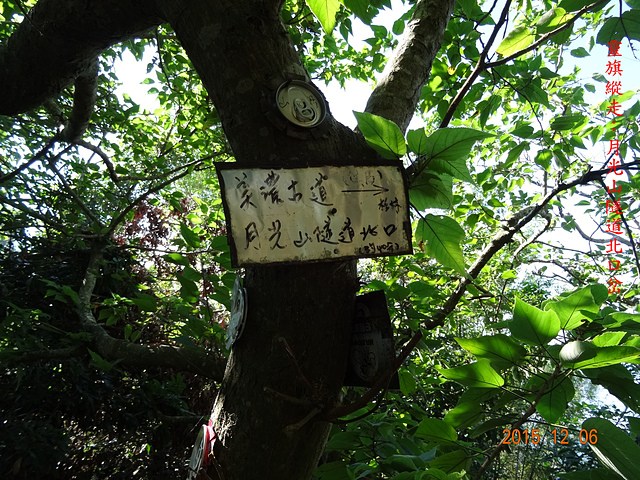 美濃古道
月光山隧道北口
靈旗縱走-月光山隧道北口岔
2015 12 06